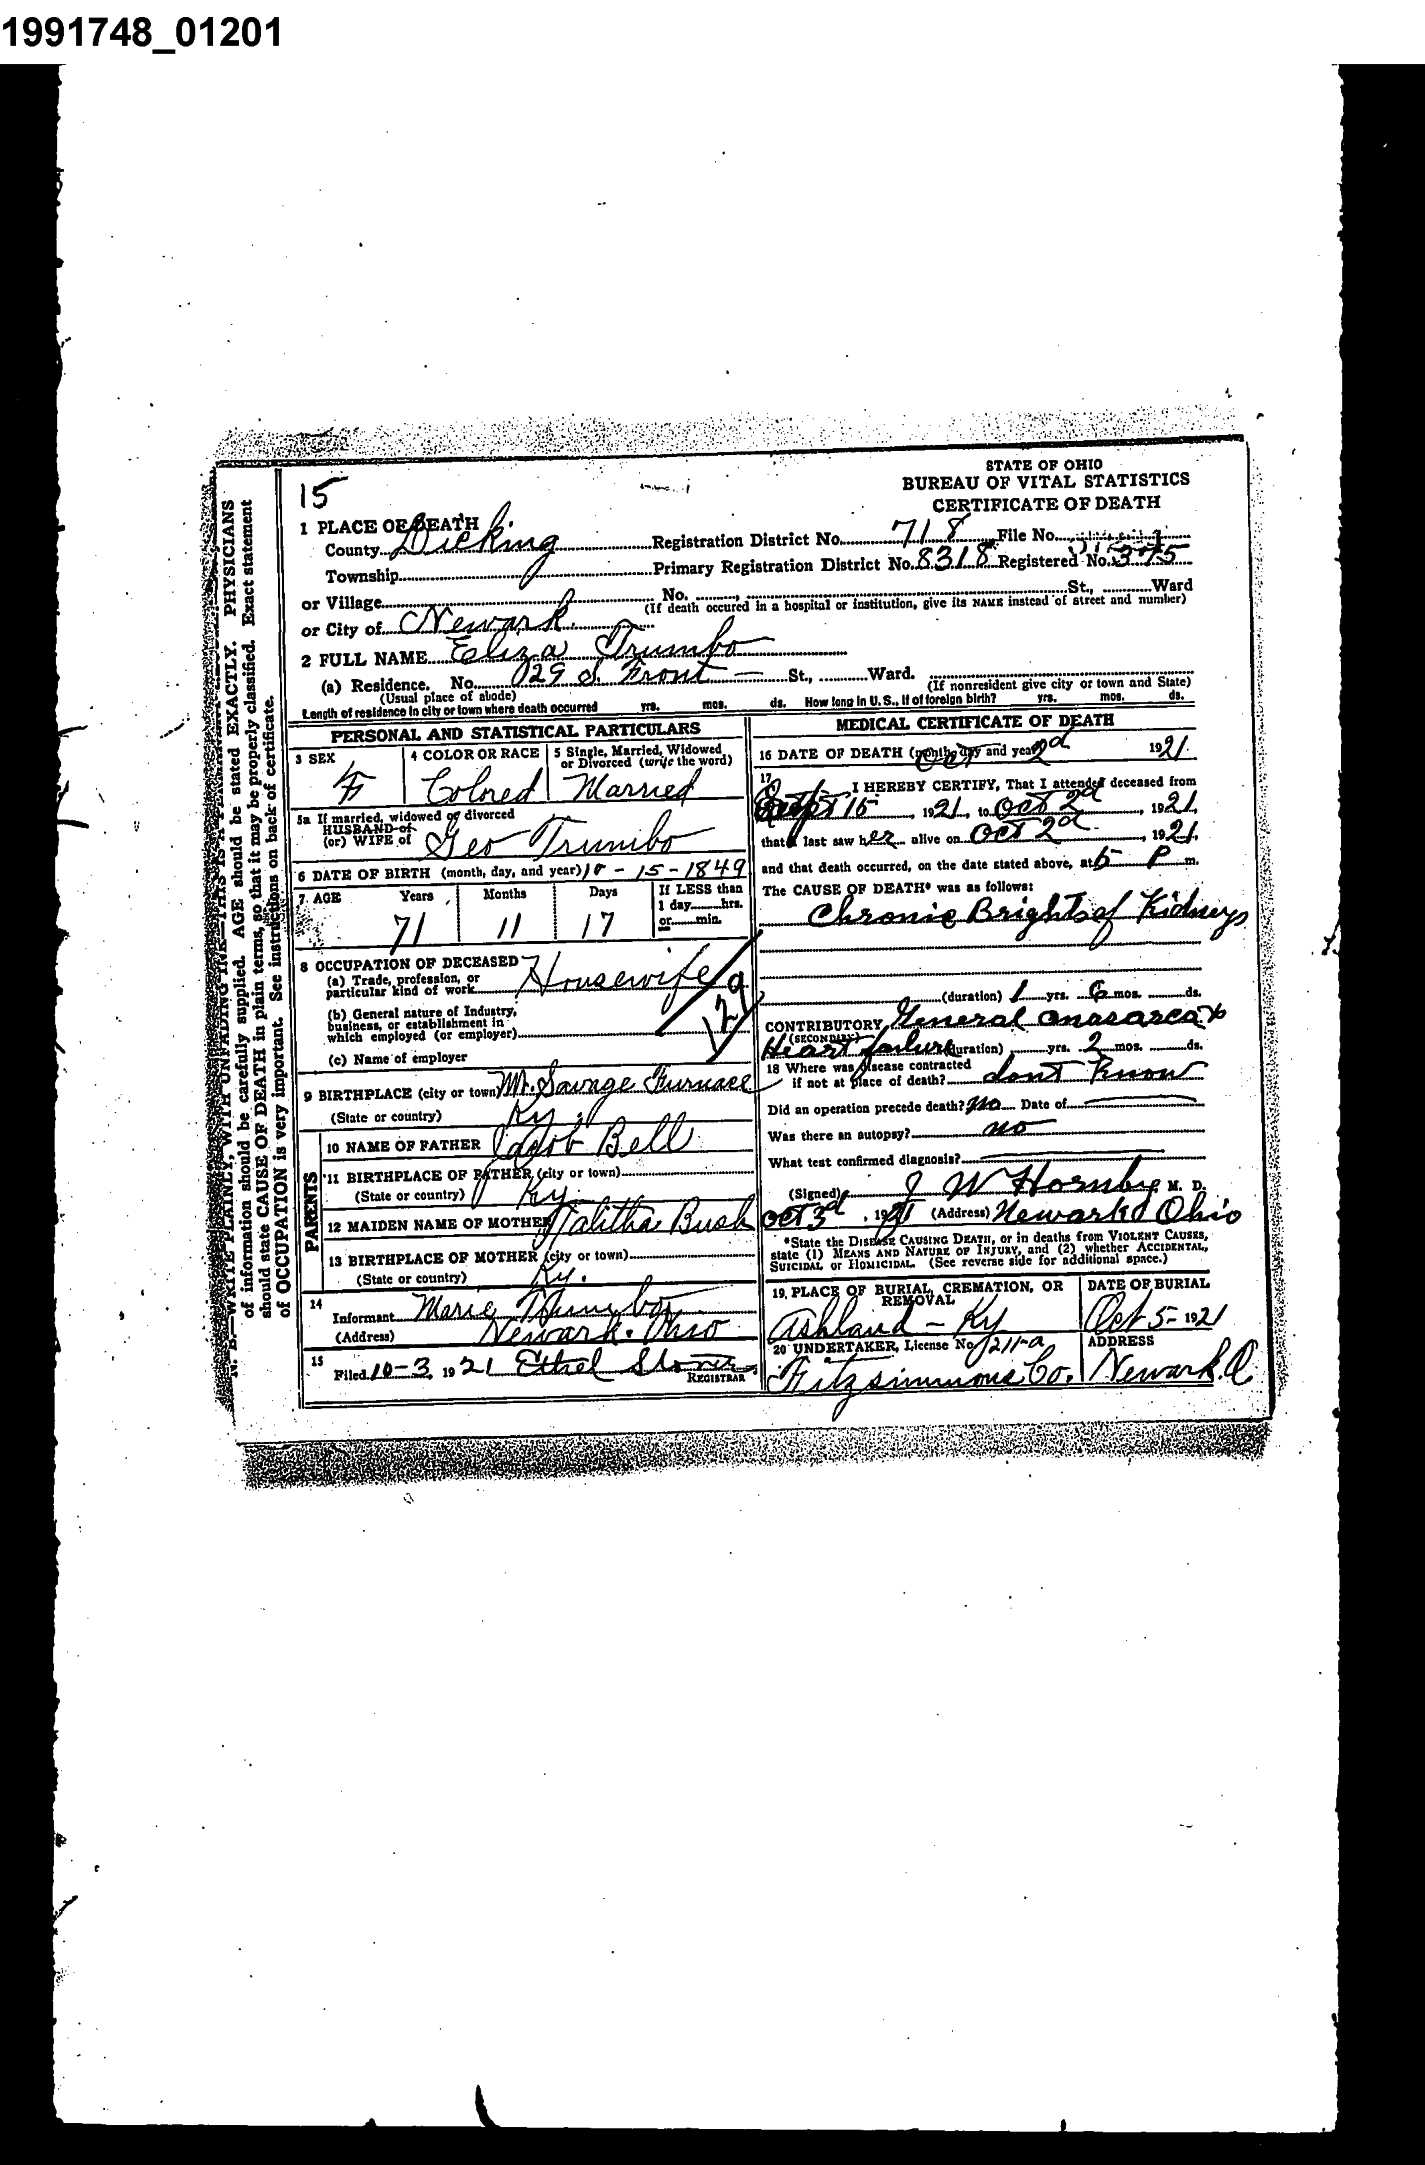 1991748_01201
STATE OF OHIO
BUREAU OF VITAL STATISTICS
CERTIFICATE OF DEATH
15
1 PLACE OF DEATH
County Licking Registration District No. 718 File No.
Township Primary Registration District No. 8318 Registered No. 375
or Village No. St., Ward
(If death occured in a hospital or institution, give its NAME instead of street and number)
or City of Newark
2 FULL NAME Eliza Trumbo
(a) Residence. No. 129 S. Front St., Ward.
(Usual place of abode) (If nonresident give city or town and State)
Length of residence in city or town where death occurred yrs. mos. ds. How long in U. S., if of foreign birth? yrs. mos. ds.
PERSONAL AND STATISTICAL PARTICULARS
3 SEX 4 COLOR OR RACE 5 Single, Married, Widowed or Divorced (write the word)
F Colored Married
5a If married, widowed or divorced
HUSBAND of
(or) WIFE of Geo Trumbo
6 DATE OF BIRTH (month, day, and year) 10-15-1849
7. AGE Years Months Days If LESS than
1 day, hrs.
or min.
71 11 17
8 OCCUPATION OF DECEASED
(a) Trade, profession, or
particular kind of work Housewife
129
(b) General nature of Industry,
business, or establishment in
which employed (or employer)
(c) Name of employer
9 BIRTHPLACE (city or town) Mt. Savage Furnace
(State or country) Ky.
PARENTS
10 NAME OF FATHER Jacob Bell
11 BIRTHPLACE OF FATHER (city or town)
(State or country) Ky
12 MAIDEN NAME OF MOTHER Talitha Bush
13 BIRTHPLACE OF MOTHER (city or town)
(State or country) Ky.
14
Informant Marie Trumbo
(Address) Newark. Ohio
15
Filed 10-3, 1921 Ethel Stoner
REGISTRAR
MEDICAL CERTIFICATE OF DEATH
16 DATE OF DEATH (month, day and year) Oct 2d 1921
17
I HEREBY CERTIFY, That I attended deceased from
Sept 15, 1921, to Oct 2d, 1921,
that I last saw her alive on Oct 2d, 1921,
and that death occurred, on the date stated above, at 5 P m.
The CAUSE OF DEATH* was as follows:
Chronic Brights of Kidneys
(duration) 1 yrs. 6 mos. ds.
CONTRIBUTORY General anasarca &
(SECONDARY)
Heart failure (duration) yrs. 2 mos. ds.
18 Where was disease contracted
if not at place of death? dont Know
Did an operation precede death? No Date of
Was there an autopsy? no
What test confirmed diagnosis?
(Signed) J W Hornby M. D.
Oct 3d, 1921 (Address) Newark Ohio
*State the DISEASE CAUSING DEATH, or in deaths from VIOLENT CAUSES,
state (1) MEANS AND NATURE OF INJURY, and (2) whether ACCIDENTAL,
SUICIDAL or HOMICIDAL. (See reverse side for additional space.)
19. PLACE OF BURIAL, CREMATION, OR REMOVAL DATE OF BURIAL
Ashland - Ky Oct 5- 1921
20 UNDERTAKER, License No. 1211-a ADDRESS
Fitzsimmons Co. Newark. O
N. B.—WRITE PLAINLY, WITH UNFADING INK—THIS IS A
of information should be carefully supplied. AGE should be stated EXACTLY. PHYSICIANS
should state CAUSE OF DEATH in plain terms, so that it may be properly classified. Exact statement
of OCCUPATION is very important. See instructions on back of certificate.